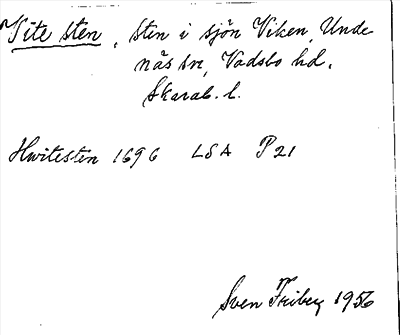 Vite sten, sten i sjön Viken, Unde-
näs sn, Vadsbo hd.
Skarab. l.
Hwitesten 1696 LSA P21
Sven Friberg 1956